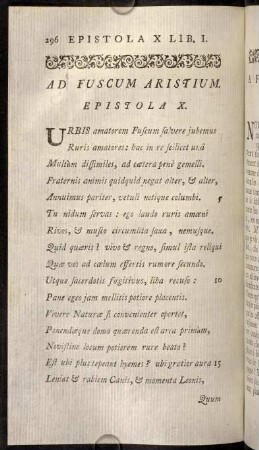 296 EPISTOLA X LIB. I.
AD FUSCUM ARISTIUM.
EPISTOLA X.
URBIS amatorem Fuscum salvere jubemus
Ruris amatores: hac in re scilicet unâ
Multùm dissimiles, ad cætera penè gemelli.
Fraternis animis quidquid negat alter, & alter,
Annuimus pariter, vetuli notique columbi. 5
Tu nidum servas: ego laudo ruris amœni
Rivos, & musco circumlita saxa, nemusque.
Quid quæris? vivo & regno, simul ista reliqui
Quæ vos ad cœlum effertis rumore secundo.
Utque sacerdotis fugitivus, liba recuso: 10
Pane egeo jam mellitis potiore placentis.
Vivere Naturæ si convenienter oportet,
Ponendæque domo quærenda est area primùm,
Novistine locum potiorem rure beato?
Est ubi plus tepeant hyemes? ubi gratior aura 15
Leniat & rabiem Canis, & momenta Leonis,
Quum